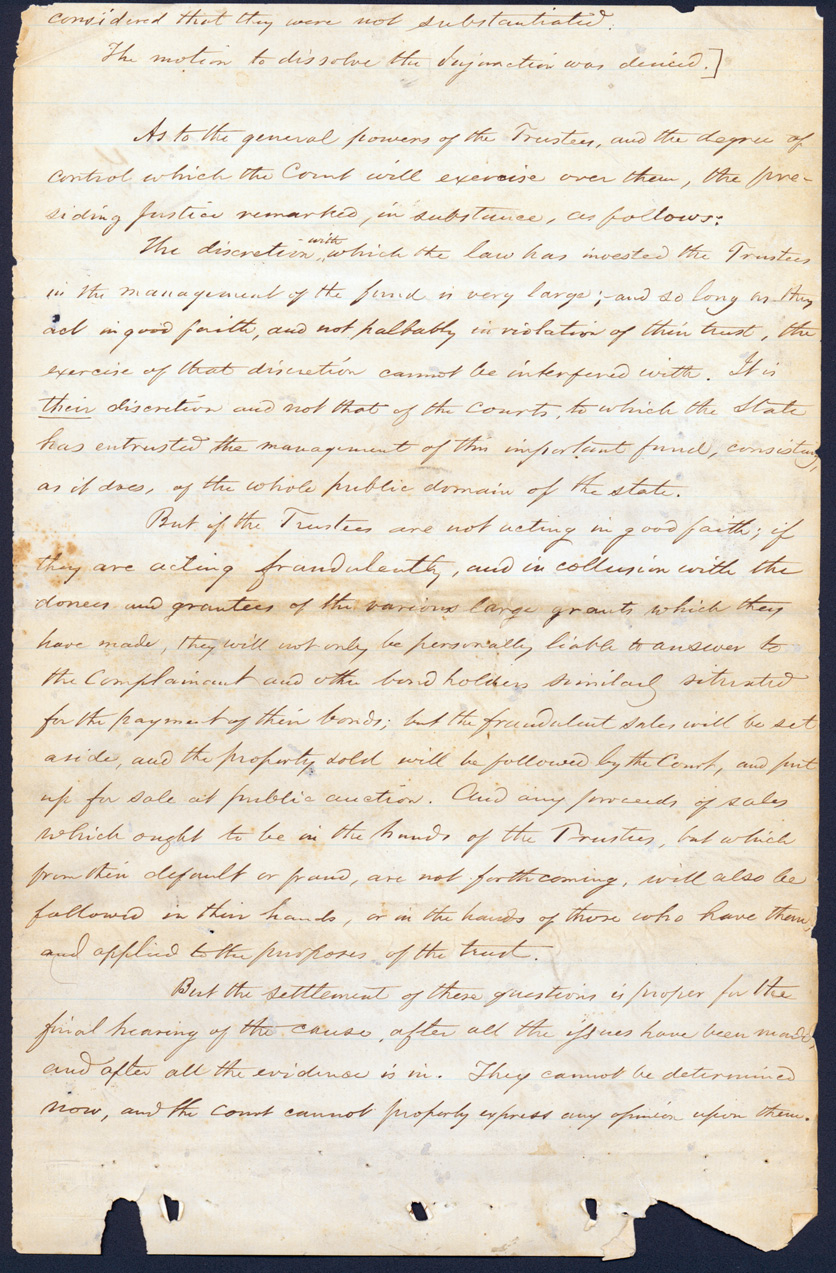 considered that they were not substantiated.
The motion to dissolve the Injunction was denied.]
As to the general powers of the Trustees, and the degree of
control which the Court will exercise over them, the pre-
siding Justice remarked, in substance, as follows:
The discretion with which the law has invested the Trustees
in the management of the fund is very large; and so long as they
act in good faith, and not palbably in violation of their trust, the
exercise of that discretion cannot be interfered with. It is
their discretion and not that of the Courts, to which the State
has entrusted the management of this important fund, consisting,
as it does, of the whole public domain of the state.
But if the Trustees are not acting in good faith; if
they are acting fraudulently, and in collusion with the
donees and grantees of the various large grants which they
have made, they will not only be personally liable to answer to
the Complainant and other bond holders similarly situated
for the payment of their bonds; but the fraudulent sales will be set
aside, and the property sold will be followed by the Court, and put
up for sale at public auction. And any proceeds of sales
which ought to be in the hands of the Trustees, but which
from their default or fraud, are not forthcoming, will also be
followed in their hands, or in the hands of those who have them,
and applied to the purposes of the trust.
But the settlement of these questions is proper for the
final hearing of the cause, after all the issues have been made,
and after all the evidence is in. They cannot be determined
now, and the Court cannot properly express any opinion upon them.